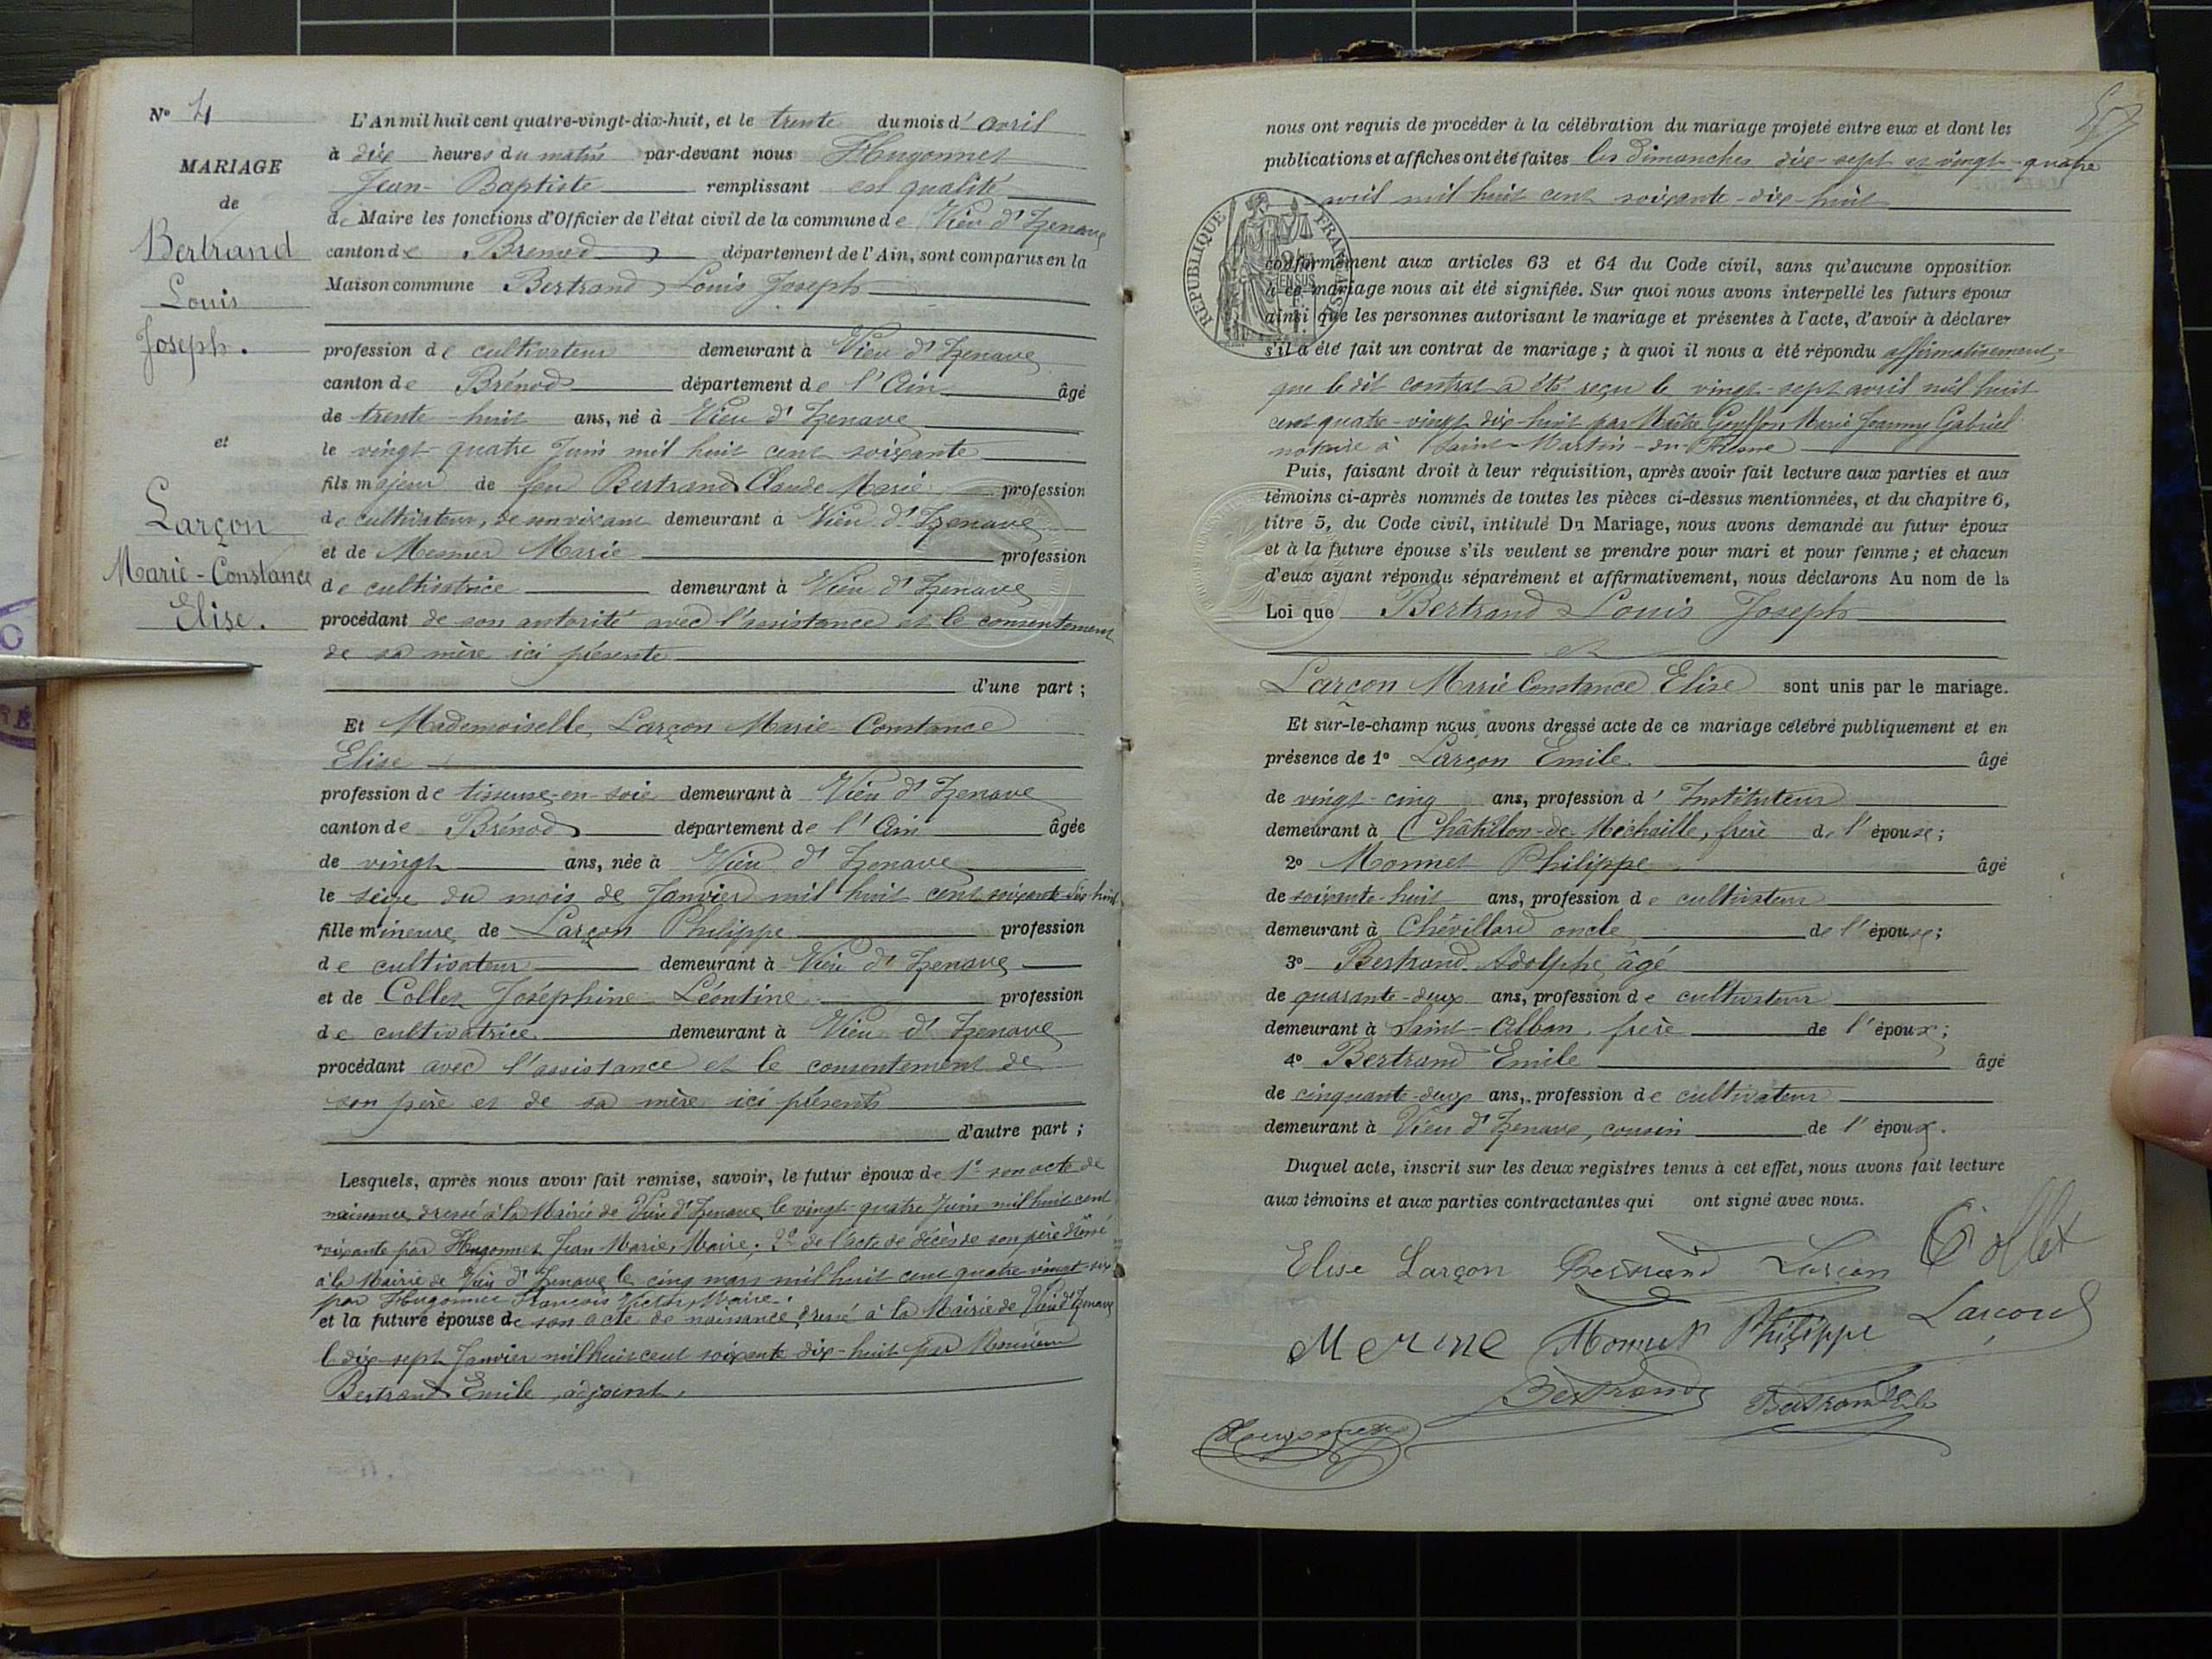 N° 4
MARIAGE
de
Bertrand
Louis
Joseph.
et
Larçon
Marie-Constance
Elise.
L'An mil huit cent quatre-vingt-dix-huit, et le trente du mois d' avril
à dix heures du matin par-devant nous Hugonnet
Jean-Baptiste remplissant en qualité
de Maire les fonctions d'Officier de l'état civil de la commune de Vieu d'Izenave
canton de Brenod département de l'Ain, sont comparus en la
Maison commune Bertrand Louis Joseph
profession de cultivateur demeurant à Vieu d'Izenave
canton de Brénod département de l'Ain âgé
de trente-huit ans, né à Vieu d'Izenave
le vingt-quatre Juin mil huit cent soixante
fils majeur de feu Bertrand Claude Marie profession
de cultivateur, de son vivant demeurant à Vieu d'Izenave
et de Marie profession
de cultivatrice demeurant à Vieu d'Izenave
procédant de son autorité avec l'assistance et le consentement
de sa mère ici présente
d'une part ;
Et Mademoiselle Larçon Marie Constance
Elise
profession de tisseuse-en-soie demeurant à Vieu d'Izenave
canton de Brénod département de l'Ain âgée
de vingt ans, née à Vieu d'Izenave
le seize du mois de Janvier mil huit cent soixante dix huit
fille mineure de Larçon Philippe profession
de cultivateur demeurant à Vieu d'Izenave
et de Collet Joséphine Léontine profession
de cultivatrice demeurant à Vieu d'Izenave
procédant avec l'assistance et le consentement de
son père et de sa mère ici présents
d'autre part ;
Lesquels, après nous avoir fait remise, savoir, le futur époux de 1° son acte de
naissance, dressé à la Mairie de Vieu d'Izenave, le vingt-quatre Juin mil huit cent
soixante par Hugonnet Jean Marie, Maire. 2° de l'acte de décès de son père dressé
à la Mairie de Vieu d'Izenave le cinq mars mil huit cent quatre vingt-six
par Hugonnet François Victor, Maire.
et la future épouse de son acte de naissance, dressé à la Mairie de Vieu d'Izenave
le dix-sept Janvier mil huit cent soixante dix-huit par Monsieur
Bertrand Emile, adjoint.
57
nous ont requis de procéder à la célébration du mariage projeté entre eux et dont les
publications et affiches ont été faites les dimanches dix-sept et vingt-quatre
avril mil huit cent soixante-dix-huit
RÉPUBLIQUE FRANÇAISE
conformément aux articles 63 et 64 du Code civil, sans qu'aucune opposition
à ce mariage nous ait été signifiée. Sur quoi nous avons interpellé les futurs époux
ainsi que les personnes autorisant le mariage et présentes à l'acte, d'avoir à déclarer
s'il a été fait un contrat de mariage ; à quoi il nous a été répondu affirmativement,
que le dit contrat a été reçu le vingt-sept avril mil huit
cent quatre-vingt dix-huit par Maître Gouffon Marie Joanny Gabriel
notaire à Saint-Martin-du-Fresne
Puis, faisant droit à leur réquisition, après avoir fait lecture aux parties et aux
témoins ci-après nommés de toutes les pièces ci-dessus mentionnées, et du chapitre 6,
titre 5, du Code civil, intitulé Du Mariage, nous avons demandé au futur époux
et à la future épouse s'ils veulent se prendre pour mari et pour femme ; et chacun
d'eux ayant répondu séparément et affirmativement, nous déclarons Au nom de la
Loi que Bertrand Louis Joseph
et
Larçon Marie Constance Elise sont unis par le mariage.
Et sur-le-champ nous avons dressé acte de ce mariage célébré publiquement et en
présence de 1° Larçon Emile âgé
de vingt-cinq ans, profession d' Instituteur
demeurant à Châtillon-de-Michaille, frère de l'épouse ;
2° Monnet Philippe âgé
de soixante-huit ans, profession de cultivateur
demeurant à Chévillard oncle de l'épouse ;
3° Bertrand Adolphe âgé
de quarante-deux ans, profession de cultivateur
demeurant à Saint-Alban, frère de l'époux ;
4° Bertrand Emile âgé
de cinquante-deux ans, profession de cultivateur
demeurant à Vieu d'Izenave, cousin de l'époux.
Duquel acte, inscrit sur les deux registres tenus à cet effet, nous avons fait lecture
aux témoins et aux parties contractantes qui ont signé avec nous.
Elise Larçon Bertrand Larçon Collet
Monnet Philippe Larçon
Bertrand Bertrand Emile
Hugonnet